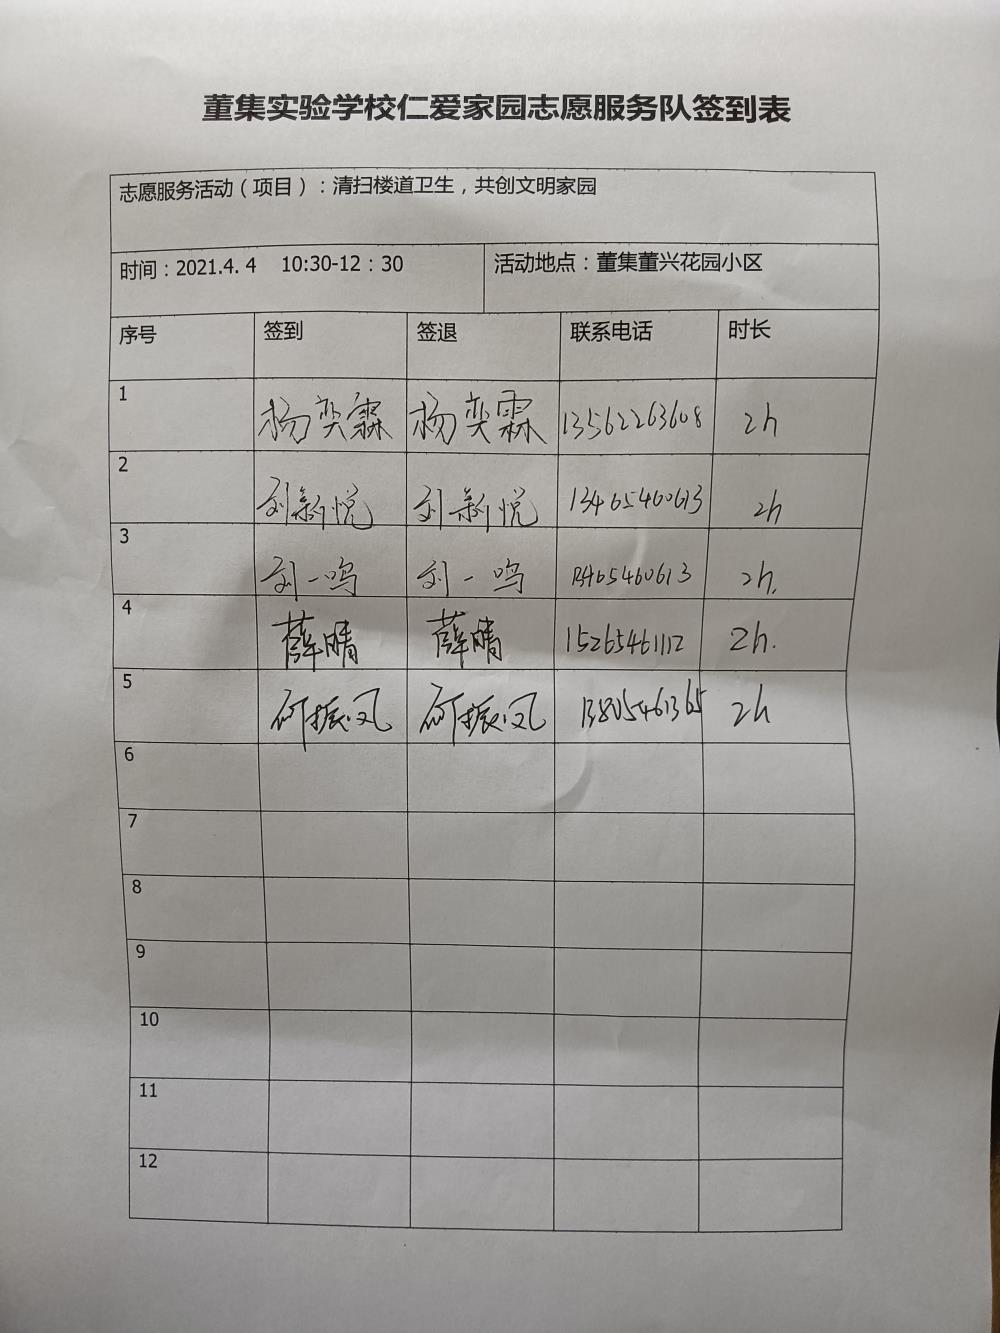 董集实验学校仁爱家园志愿服务队签到表
志愿服务活动（项目）：清扫楼道卫生，共创文明家园
时间：2021.4. 4 10:30-12：30 活动地点：董集董兴花园小区
序号 签到 签退 联系电话 时长
1 杨奕霖 杨奕霖 13562263608 2h
2 刘新悦 刘新悦 13465460613 2h
3 刘一鸣 刘一鸣 13465460613 2h.
4 薛晴 薛晴 15265461112 2h.
5 振凤 振凤 13805461365 2h
6
7
8
9
10
11
12